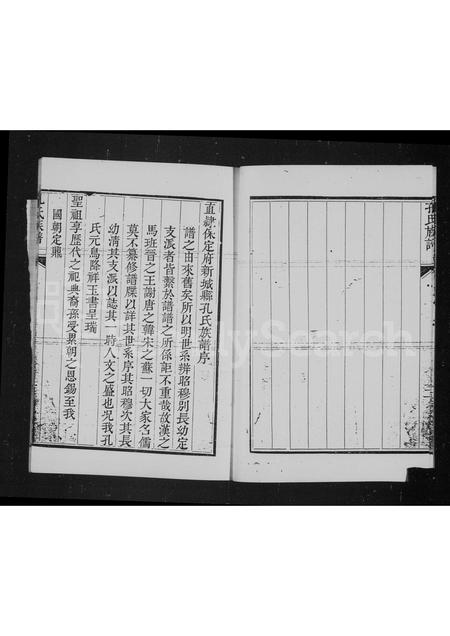 孔氏族譜
直隸保定府新城縣孔氏族譜序
譜之由來舊矣所以明世系辨昭穆別長幼定
支派者皆繫於譜譜之所係詎不重哉故漢之
馬班晉之王謝唐之韓宋之蘇一切大家名儒
莫不纂修譜牒以詳其世系序其昭穆次其長
幼清其支派以誌其一時人文之盛也況我孔
氏元鳥降祥玉書呈瑞
聖祖享歷代之祀典裔孫受累朝之恩錫至我
國朝定鼎
孔氏族譜
FamilySearch